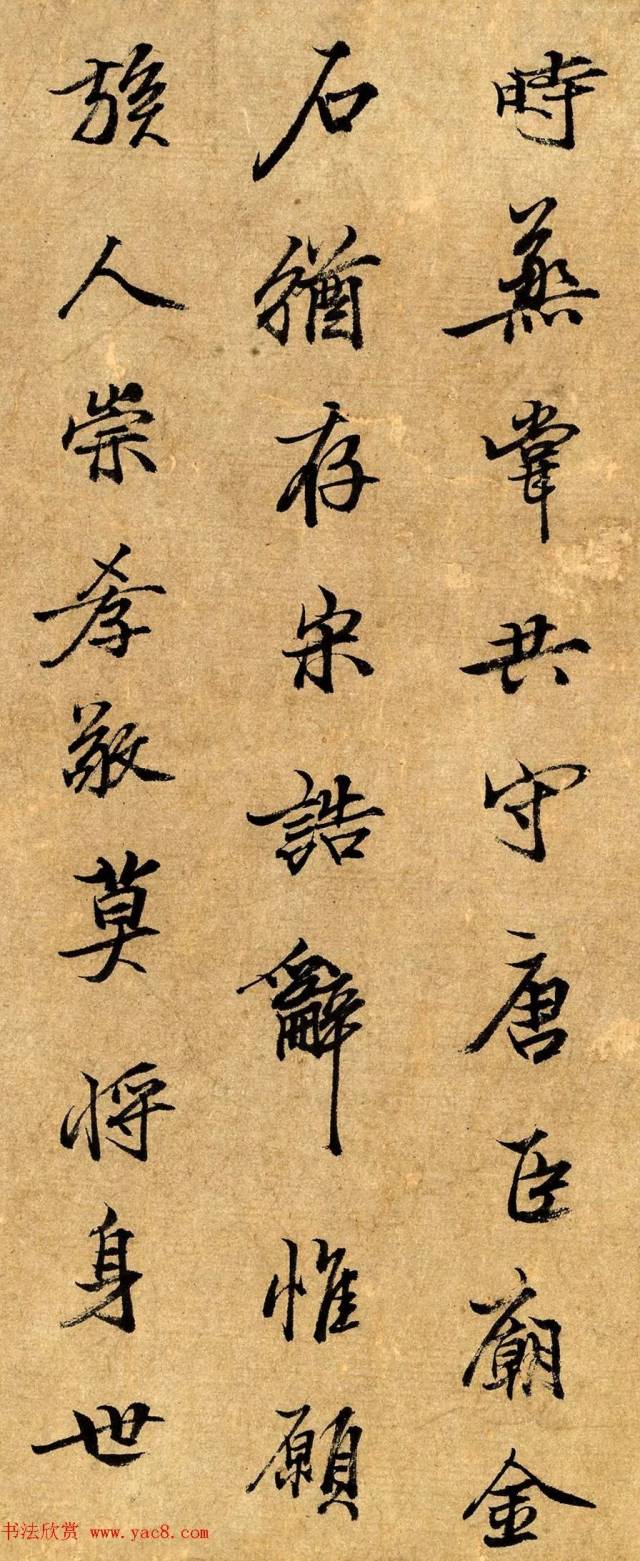 時蒸嘗共守唐臣廟金
石猶存宋誥辭惟願
族人崇孝敬莫將身世
书法欣赏 www.yac8.com